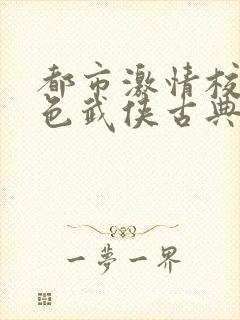 都市激情校
色武侠古典
一夢一界